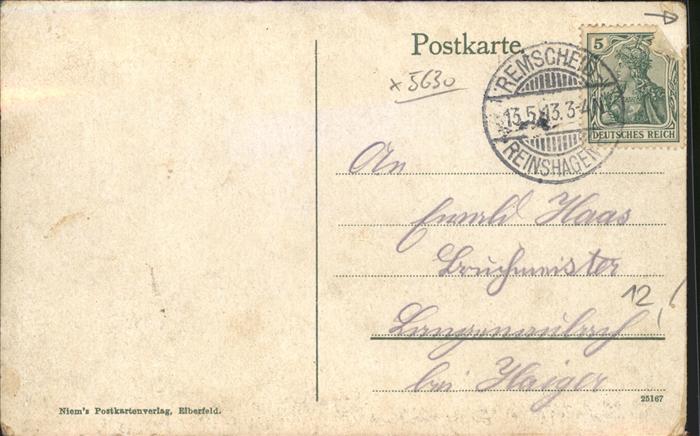 Postkarte
5
DEUTSCHES REICH
REMSCHEID
13.5.13.3-4N
REINSHAGEN
x 5630
An
Ewald Haas
Bruchmeister
12,
Langenaubach
bei Haiger
Niem's Postkartenverlag, Elberfeld.
25167